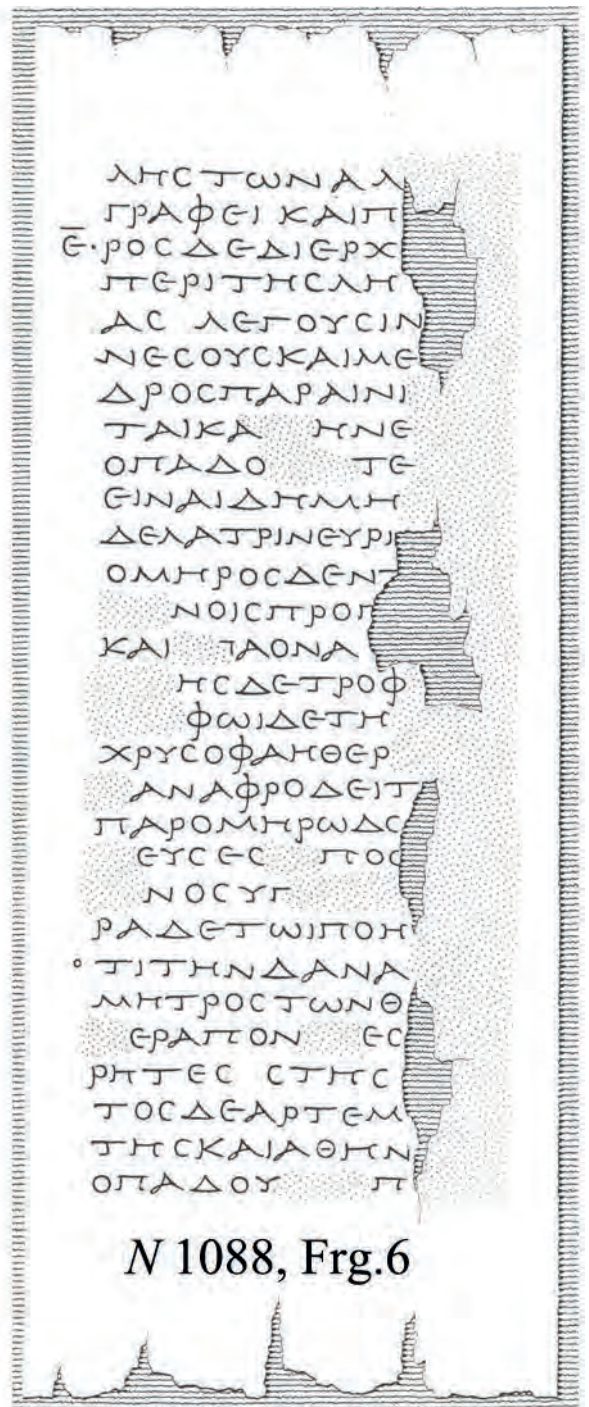 ΛΗϹΤΩΝΑΛ
ΓΡΑΦΕΙΚΑΙΠ
Ε̅·ΡΟϹΔΕΔΙΕΡΧ
ΠΕΡΙΤΗϹΛΗ
ΑϹ ΛΕΓΟΥϹΙΝ
ΝΕϹΟΥϹΚΑΙΜΕ
ΔΡΟϹΠΑΡΑΙΝΙ
ΤΑΙΚΑ ΗΝΕ
ΟΠΑΔΟ ΤΕ
ΕΙΝΑΙΔΗΜΗ
ΔΕΛΑΤΡΙΝΕΥΡΙ
ΟΜΗΡΟϹΔΕΝΤ
ΝΟΙϹΠΡΟΠ
ΚΑΙ ΠΑΟΝΑ
ΗϹΔΕΤΡΟΦ
ΦΩΙΔΕΤΗ
ΧΡΥϹΟΦΑΗΘΕΡ
ΑΝΑΦΡΟΔΕΙΤ
ΠΑΡΟΜΗΡΩΔϹ
ΕΥϹΕϹ ΠΟϹ
ΝΟϹΥΓ
ΡΑΔΕΤΩΙΠΟΗ
ο ΤΙΤΗΝΔΑΝΑ
ΜΗΤΡΟϹΤΩΝΘ
ΕΡΑΠΟΝ ΕϹ
ΡΗΤΕϹ ϹΤΗϹ
ΤΟϹΔΕΑΡΤΕΜ
ΤΗϹΚΑΙΑΘΗΝ
ΟΠΑΔΟΥ Π
N 1088, Frg.6